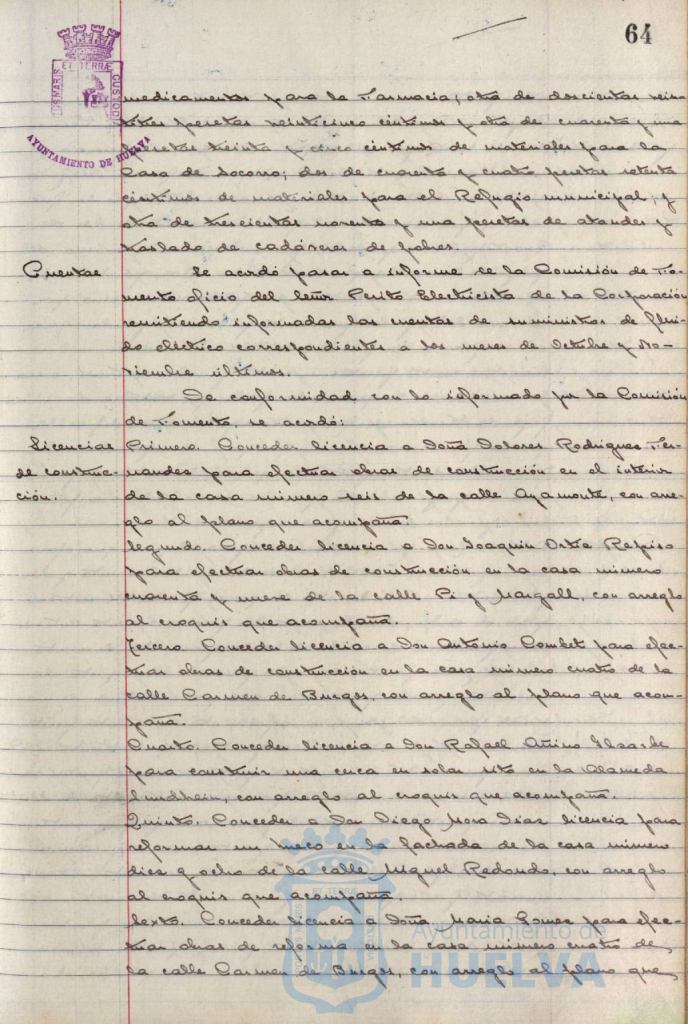 64
ET TERRÆ
CUSTODIA
AYUNTAMIENTO DE HUELVA
medicamentos para la Farmacia; otra de doscientas vein-
titres pesetas veinticinco céntimos y otra de cuarenta y una
pesetas treinta y cinco céntimos de materiales para la
Casa de Socorro; dos de cuarenta y cuatro pesetas setenta
céntimos de materiales para el Refugio municipal; y
otra de trescientas noventa y una pesetas de ataudes y
traslado de cadáveres de pobres.
Cuentas
Se acordó pasar a informe de la Comisión de Fo-
mento oficio del Señor Perito Electricista de la Corporación
remitiendo informadas las cuentas de suministros de flui-
do eléctrico correspondientes a los meses de Octubre y No-
viembre últimos.
De conformidad con lo informado por la Comisión
de Fomento, se acordó:
Licencias
de construc-
ción.
Primero. Conceder licencia a Doña Dolores Rodriguez Fer-
nandez para efectuar obras de construcción en el interior
de la casa número seis de la calle Ayamonte, con arre-
glo al plano que acompaña.
Segundo. Conceder licencia a Don Joaquin Ortiz Repiso
para efectuar obras de construcción en la casa número
cuarenta y nueve de la calle Pi y Margall, con arreglo
al croquis que acompaña.
Tercero. Conceder licencia a Don Antonio Combet para efec-
tuar obras de construcción en la casa número cuatro de la
calle Carmen de Burgos, con arreglo al plano que acom-
paña.
Cuarto. Conceder licencia a Don Rafael
para construir una cerca en solar sito en la Alameda
Sundheim, con arreglo al croquis que acompaña.
Quinto. Conceder a Don Diego Mora Diaz licencia para
reformar un hueco en la fachada de la casa número
diez y ocho de la calle Miguel Redondo, con arreglo
al croquis que acompaña.
Sexto. Conceder licencia a Doña Maria Gomez para efec-
tuar obras de reforma en la casa número cuatro de
la calle Carmen de Burgos, con arreglo al plano que
Ayuntamiento de
HUELVA